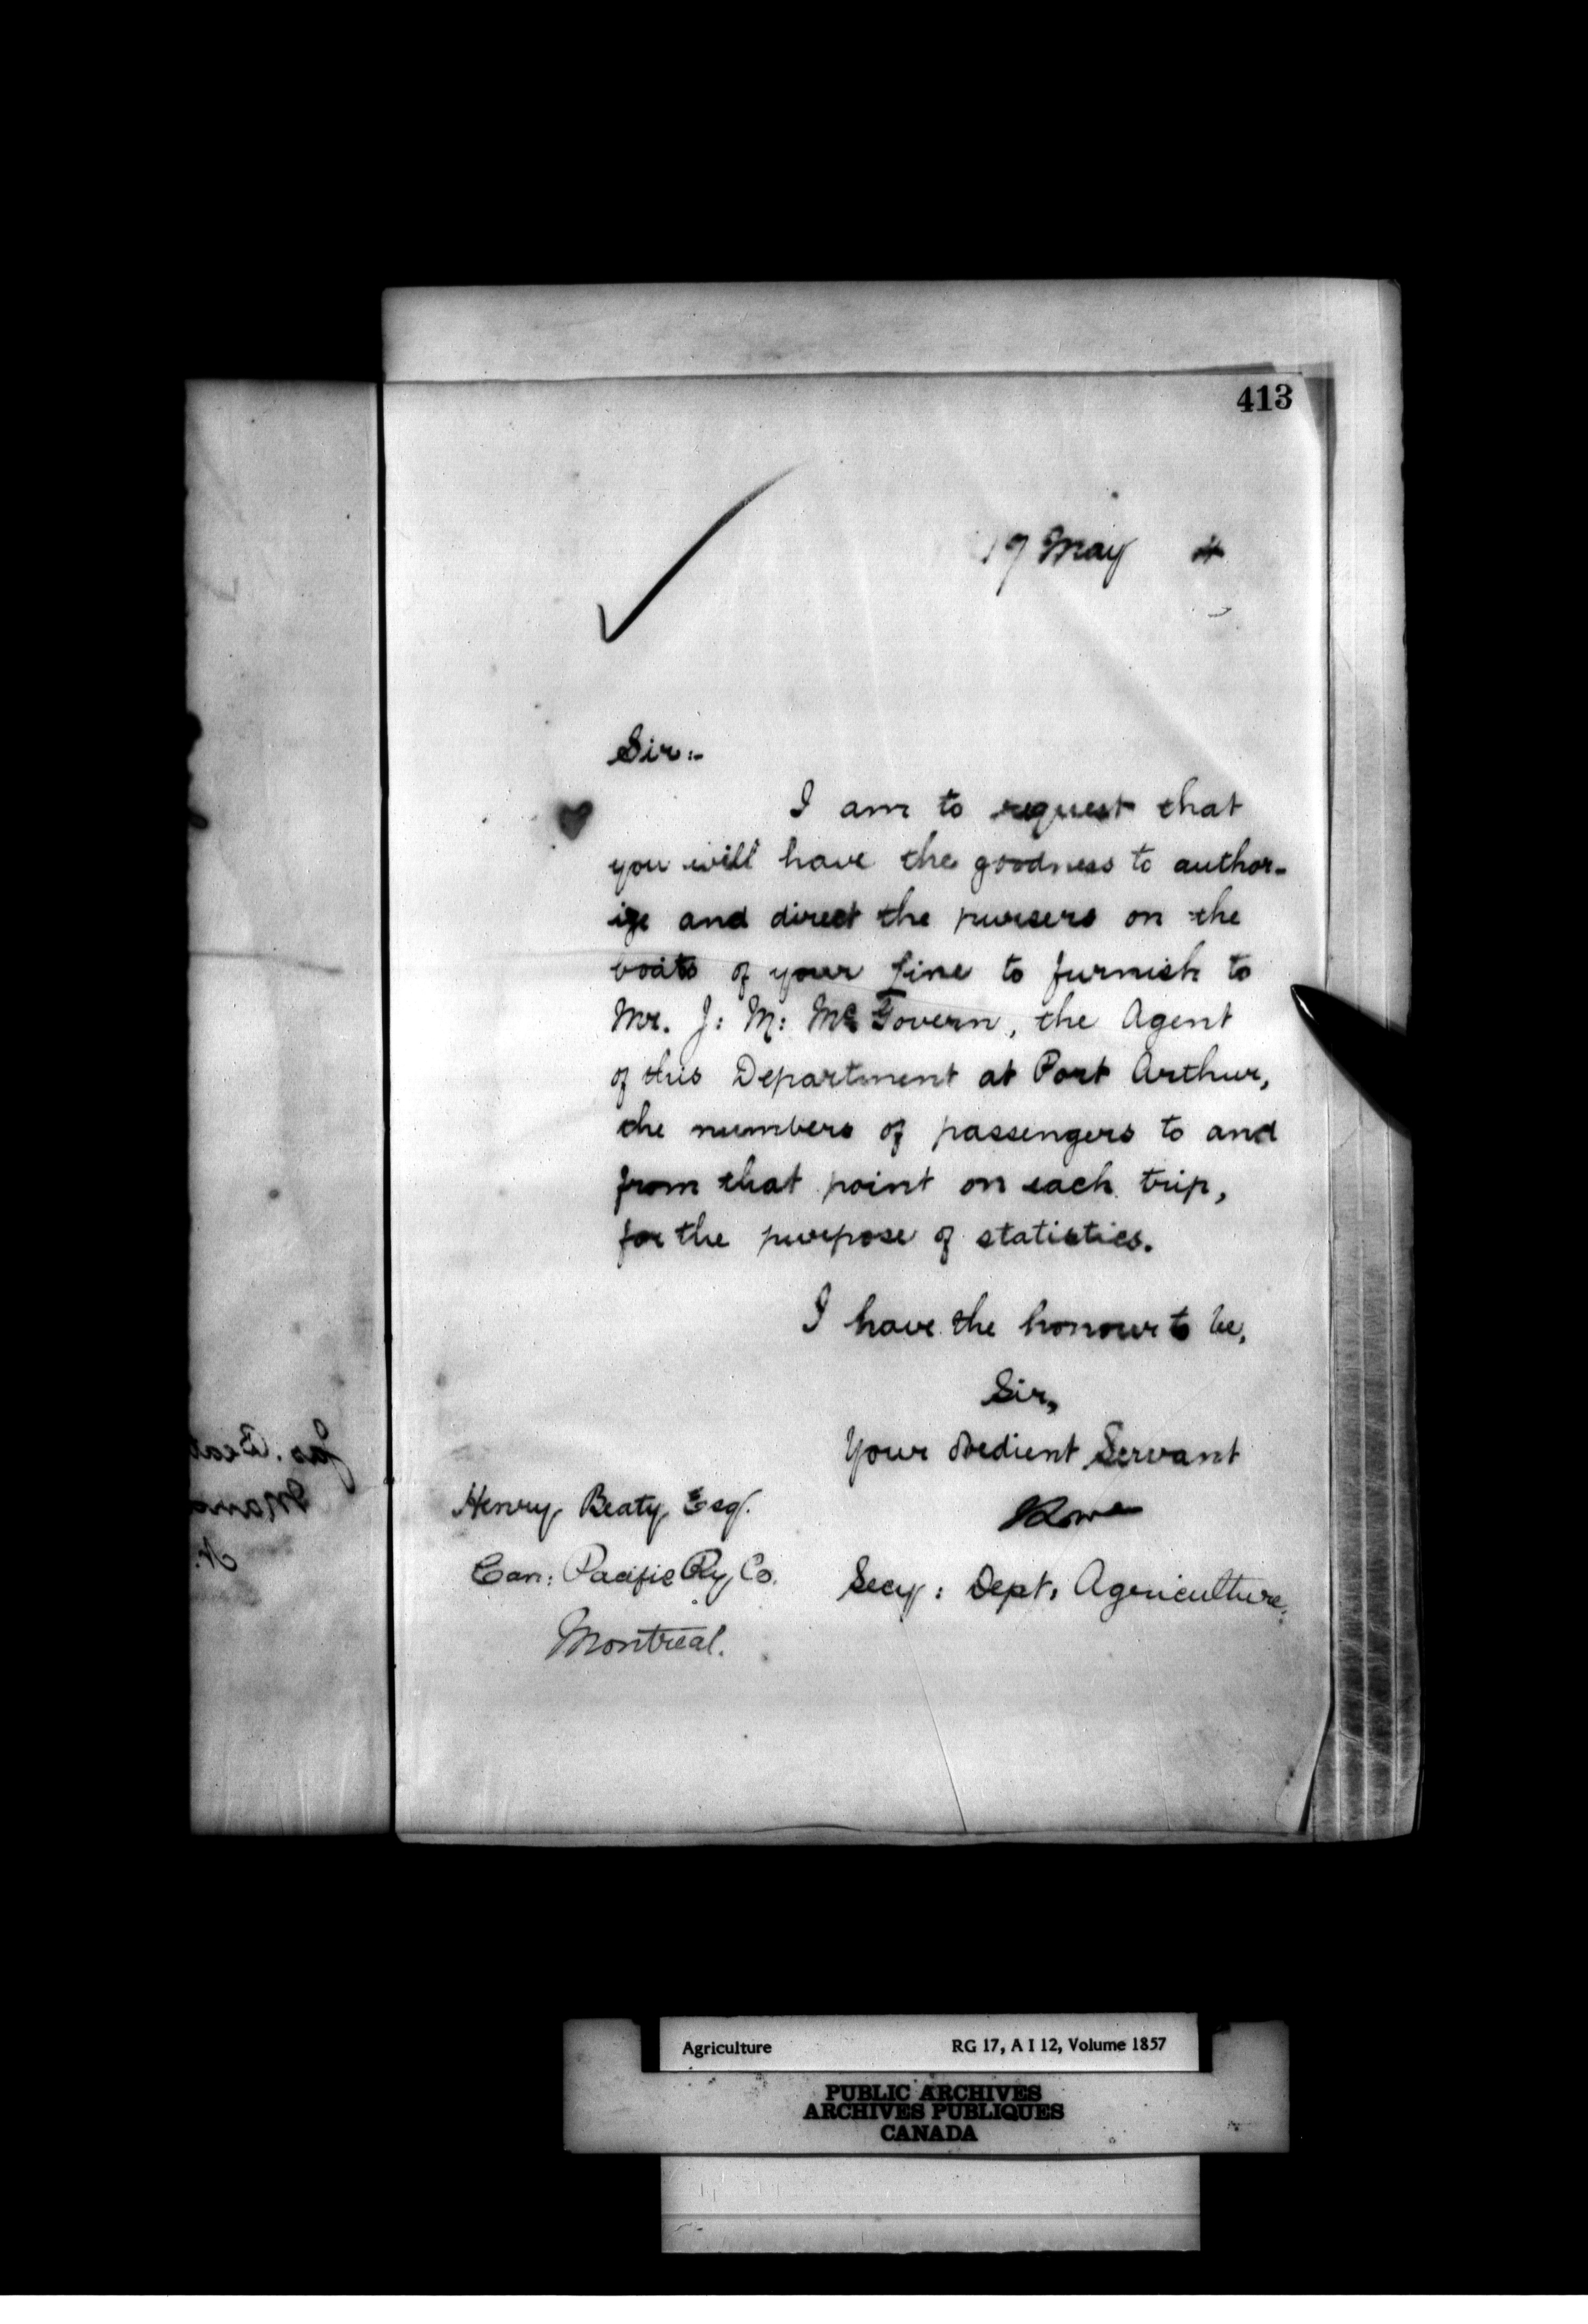 413
17 May
Sir:-
I am to request that
you will have the goodness to author-
ize and direct the pursers on the
boats of your Line to furnish to
Mr. J: M: McGovern, the Agent
of this Department at Port Arthur,
the numbers of passengers to and
from that point on each trip,
for the purpose of statistics.
I have the honour to be,
Sir,
Your obedient Servant
Secy: Dept. Agriculture.
Henry Beaty Esq.
Can: Pacific Ry Co.
Montreal.
Agriculture RG 17, A I 12, Volume 1857
PUBLIC ARCHIVES
ARCHIVES PUBLIQUES
CANADA